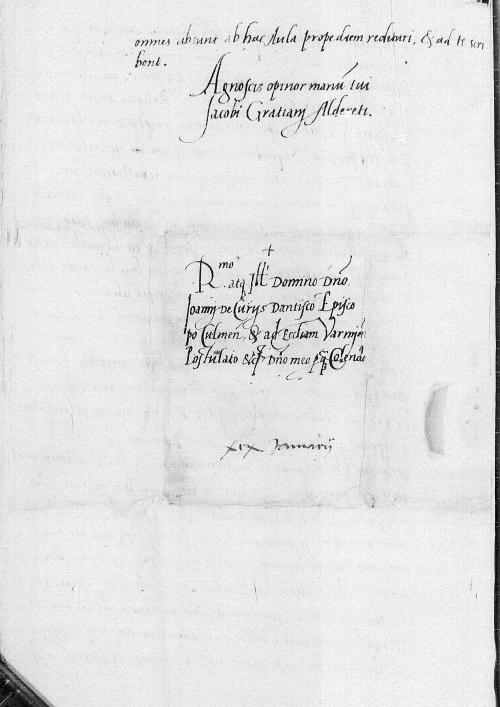 omnes absunt ab hac Aula propediem redituri, & ad te scri
bent.
Agnoscis opinor manū tui
Jacobi Gratiani Aldereti.
+
Rmo atq Illi Domino Dno
Joanni De Curijs Dantisco Episco
po Culmen, & ad Eccliam Varmien
Postulato &c Dno meo Colendo
xxx Januarij